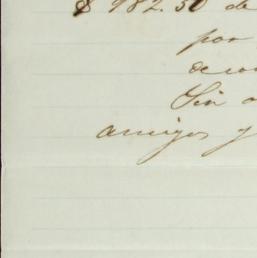 $ 982.50 de
por
Sin o
amigos y